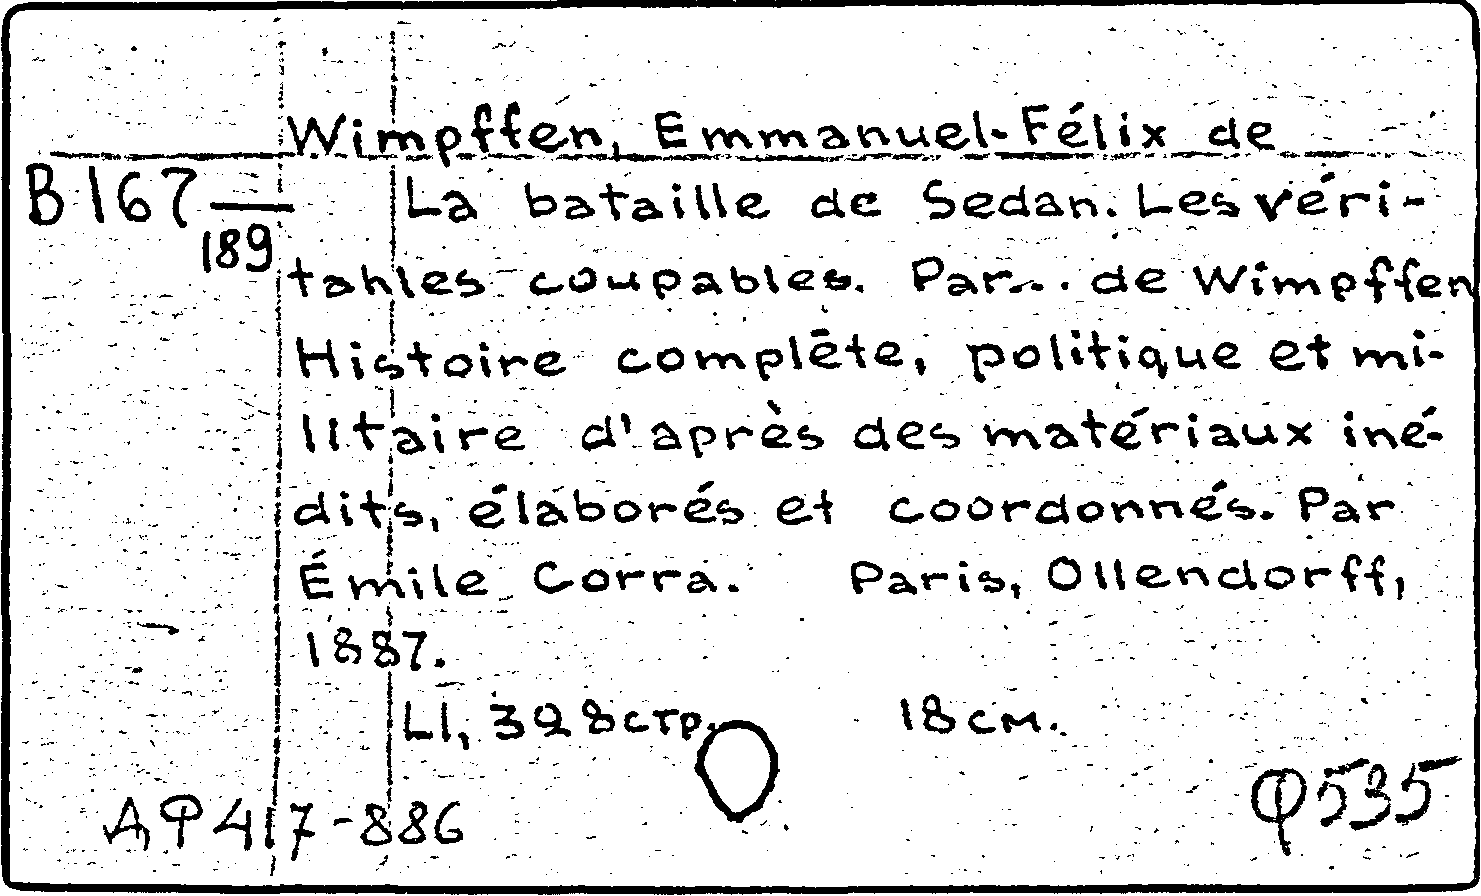 Wimpffen, Emmanuel-Félix de
B167 — La bataille de Sedan. Les véri-
189
tables coupables. Par... de Wimpffen
Histoire complète, politique et mi-
litaire d'après des matériaux iné-
dits, élaborés et coordonnés. Par
Émile Corra. Paris, Ollendorff,
1887.
LI, 328 стр. 18 см.
Ф535
АФ417-886